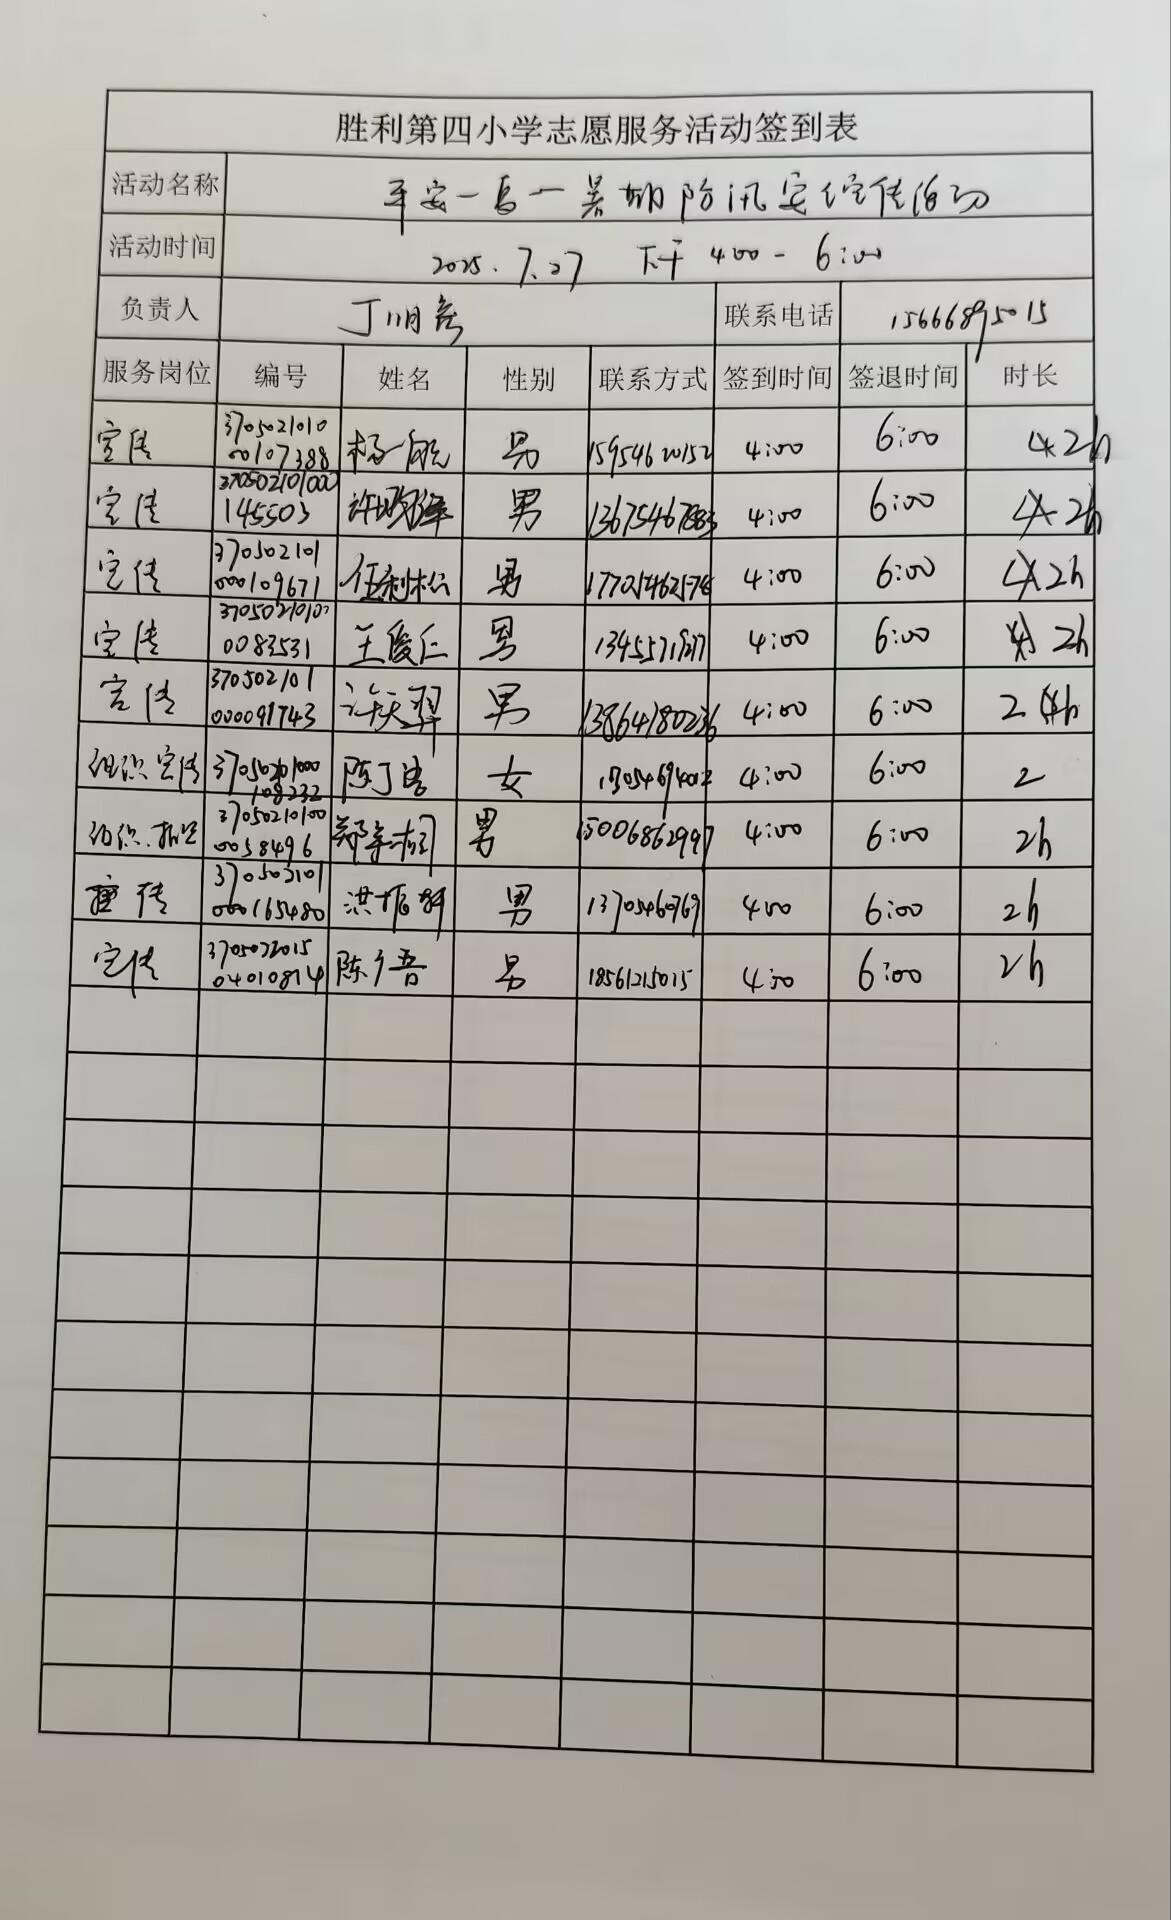 胜利第四小学志愿服务活动签到表
活动名称 平安一 一暑期防汛安全宣传活动
活动时间 2025.7.27 下午 4:00-6:00
负责人 丁 联系电话 15666895015
服务岗位 编号 姓名 性别 联系方式 签到时间 签退时间 时长
宣传 3705021010 杨一 男 15954620152 4:00 6:00 2h
00107388
宣传 370502101000 许 男 13675467883 4:00 6:00 2h
145503
宣传 370502101 任利松 男 4:00 6:00 2h
000109671
宣传 王俊仁 男 4:00 6:00 2h
0083531
宣传 370502101 许天羿 男 13864780236 4:00 6:00 2h
000091743
组织宣传 陈丁洁 女 4:00 6:00 2
108232
组织. 37050210100 郑 男 15006862997 4:00 6:00 2h
0058496
宣传 370502101 洪振 男 4:00 6:00 2h
000165480
宣传 陈 男 18561215015 4:00 6:00 2h
04010814